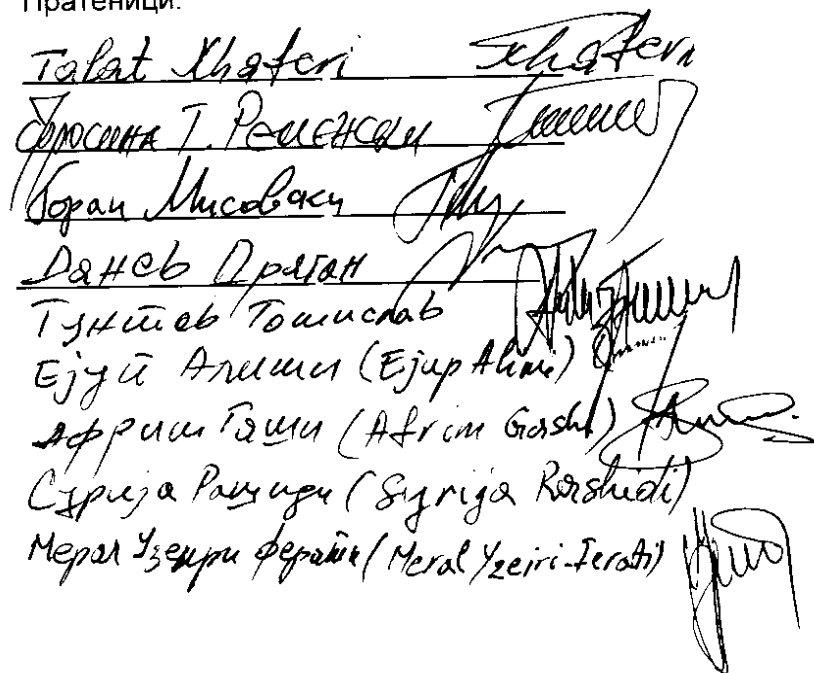 Пратеници:
Talat Xhaferi Xhaferi
Фросина Т. Ременски
Горан Мисовски
Данев Драган
Тунтев Томислав
Ејуп Алими (Ejup Alimi)
Африм Гаши (Afrim Gashi)
Сурија Рашиди (Syrija Rashidi)
Мерал Узеири Ферати (Meral Yzeiri-Ferati)